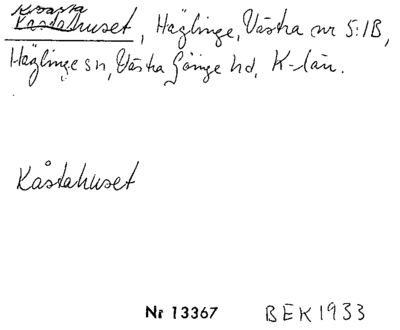 Kvasta
Kastahuset, Häglinge, Västra nr 5:1B,
Häglinge sn, Västra Göinge hd, K-län.
Kåstahuset
Nr 13367 BEK1933